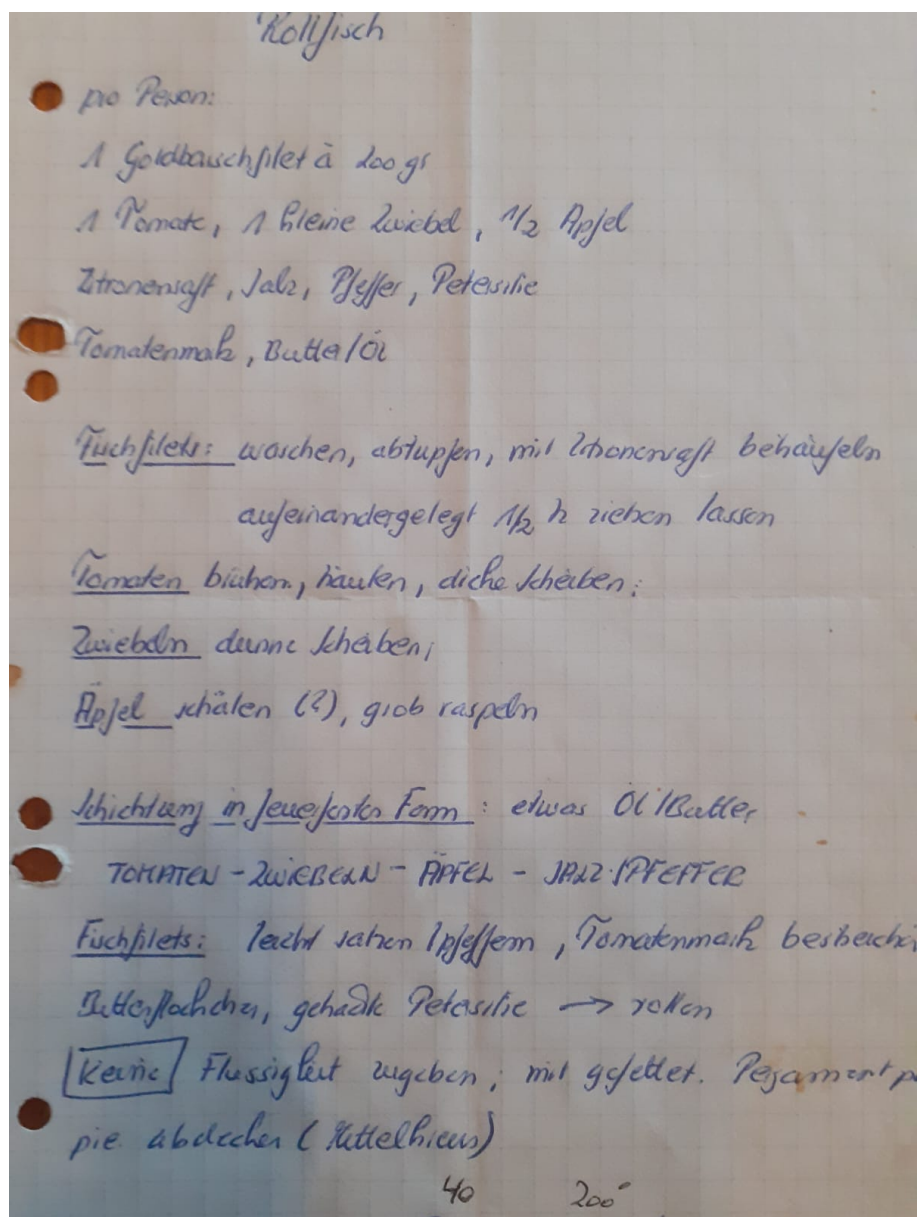 Rollfisch
pro Person:
1 Goldbarschfilet à 200 gr
1 Tomate, 1 kleine Zwiebel, 1/2 Apfel
Zitronensaft, Salz, Pfeffer, Petersilie
Tomatenmark, Butter/Öl
Fischfilets: waschen, abtupfen, mit Zitronensaft beträufeln
aufeinandergelegt 1/2 h ziehen lassen
Tomaten brühen, häuten, dicke Scheiben;
Zwiebeln dünne Scheiben;
Äpfel schälen (?), grob raspeln
Schichtung in feuerfester Form: etwas Öl/Butter
TOMATEN - ZWIEBELN - ÄPFEL - SALZ/PFEFFER
Fischfilets: leicht salzen/pfeffern, Tomatenmark bestreiche
Butterflöckchen, gehackte Petersilie → rollen
Keine Flüssigkeit zugeben; mit gefettet. Pergamentpa
pier abdecken (Mittelkreus)
40 200°